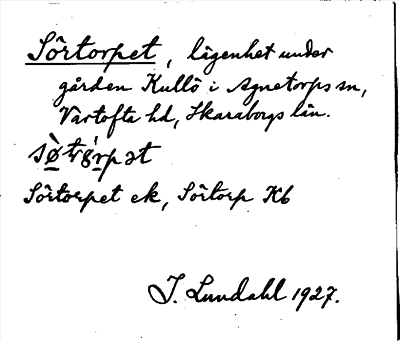 Sörtorpet, lägenhet under
gården Kullö i Agnetorps sn,
Vartofta hd, Skaraborgs län.
Sörtorpet ek, Sörtorp Kb
J. Lundahl 1927.